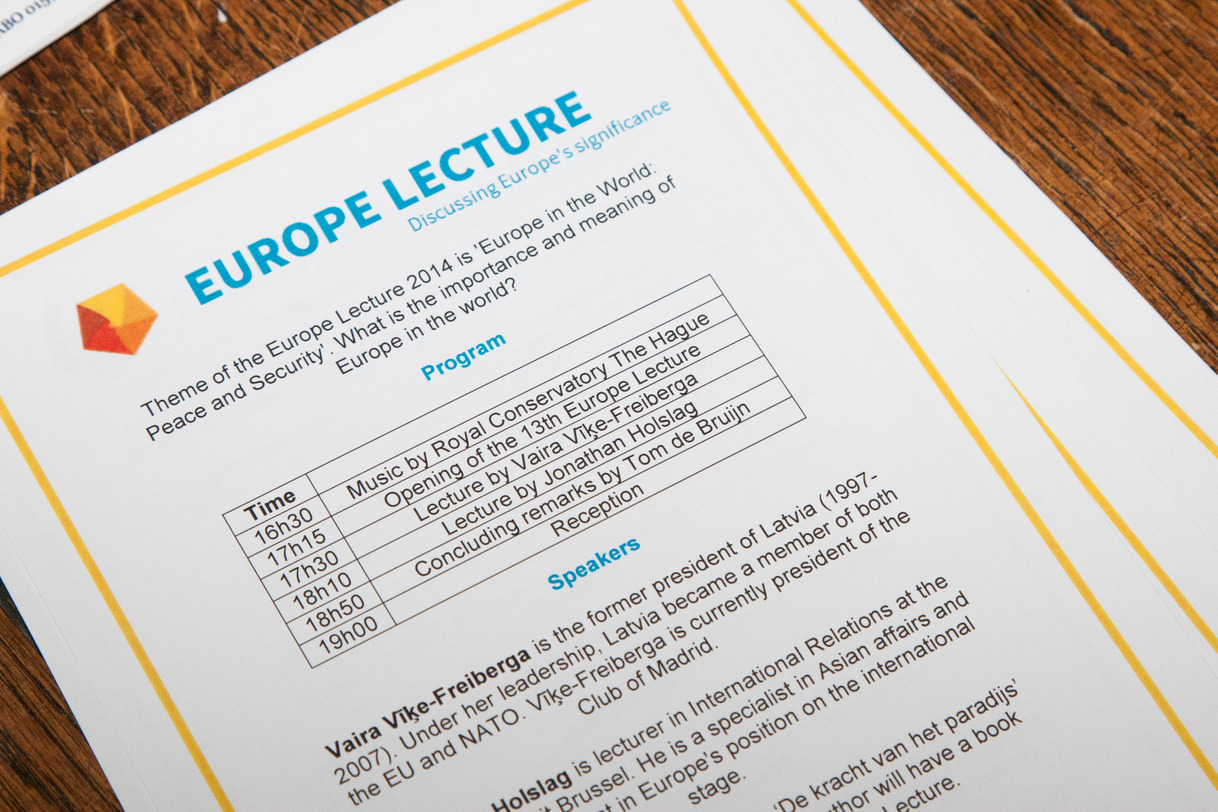 EUROPE LECTURE
Discussing Europe's significance
Theme of the Europe Lecture 2014 is 'Europe in the World:
Peace and Security'. What is the importance and meaning of
Europe in the world?
Program
Time
16h30 Music by Royal Conservatory The Hague
17h15 Opening of the 13th Europe Lecture
17h30 Lecture by Vaira Vīķe-Freiberga
18h10 Lecture by Jonathan Holslag
18h50 Concluding remarks by Tom de Bruijn
19h00 Reception
Speakers
Vaira Vīķe-Freiberga is the former president of Latvia (1997-
2007). Under her leadership, Latvia became a member of both
the EU and NATO. Vīķe-Freiberga is currently president of the
Club of Madrid.
Holslag is lecturer in International Relations at the
Brussel. He is a specialist in Asian affairs and
in Europe's position on the international
stage.
'De kracht van het paradijs'
will have a book
Lecture.